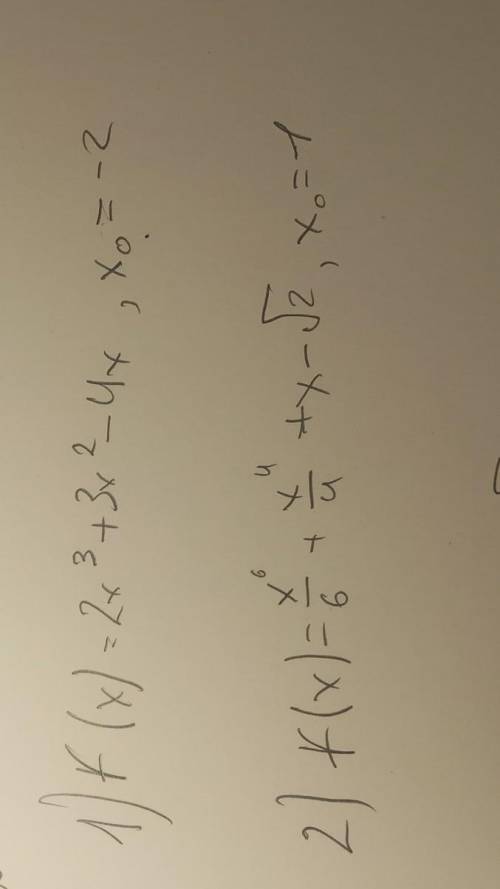 1) f(x) = 2x³ + 3x² - 4x , x₀ = -2
2) f(x) = x⁶/6 + x⁴/4 + x - √2 , x₀ = -1